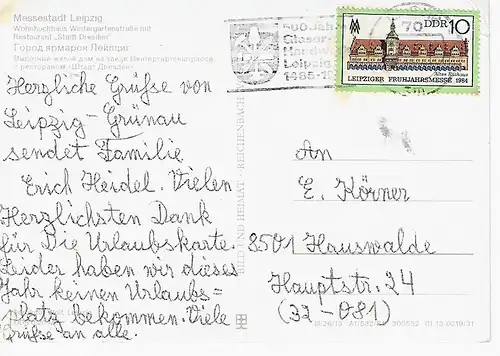 Messestadt Leipzig
Wohnhochhaus Wintergartenstraße mit
Restaurant „Stadt Dresden“
Город ярмарок Лейпциг
с рестораном «Штадт Дрезден»
Herzliche Grüße von
Leipzig-Grünau
sendet Familie
Erich Heidel. Vielen
Herzlichsten Dank
für Die Urlaubskarte.
Leider haben wir dieses
Jahr keinen Urlaubs=
platz bekommen. Viele
Grüße an alle.
BILD UND HEIMAT REICHENBACH
500 Jahre
Leipzig
1485-1
70
DDR 10
Altes Rathaus
LEIPZIGER FRÜHJAHRSMESSE 1984
An
E. Körner
8501 Hauswalde
Hauptstr. 24
(32-081)
01 13 0219/31